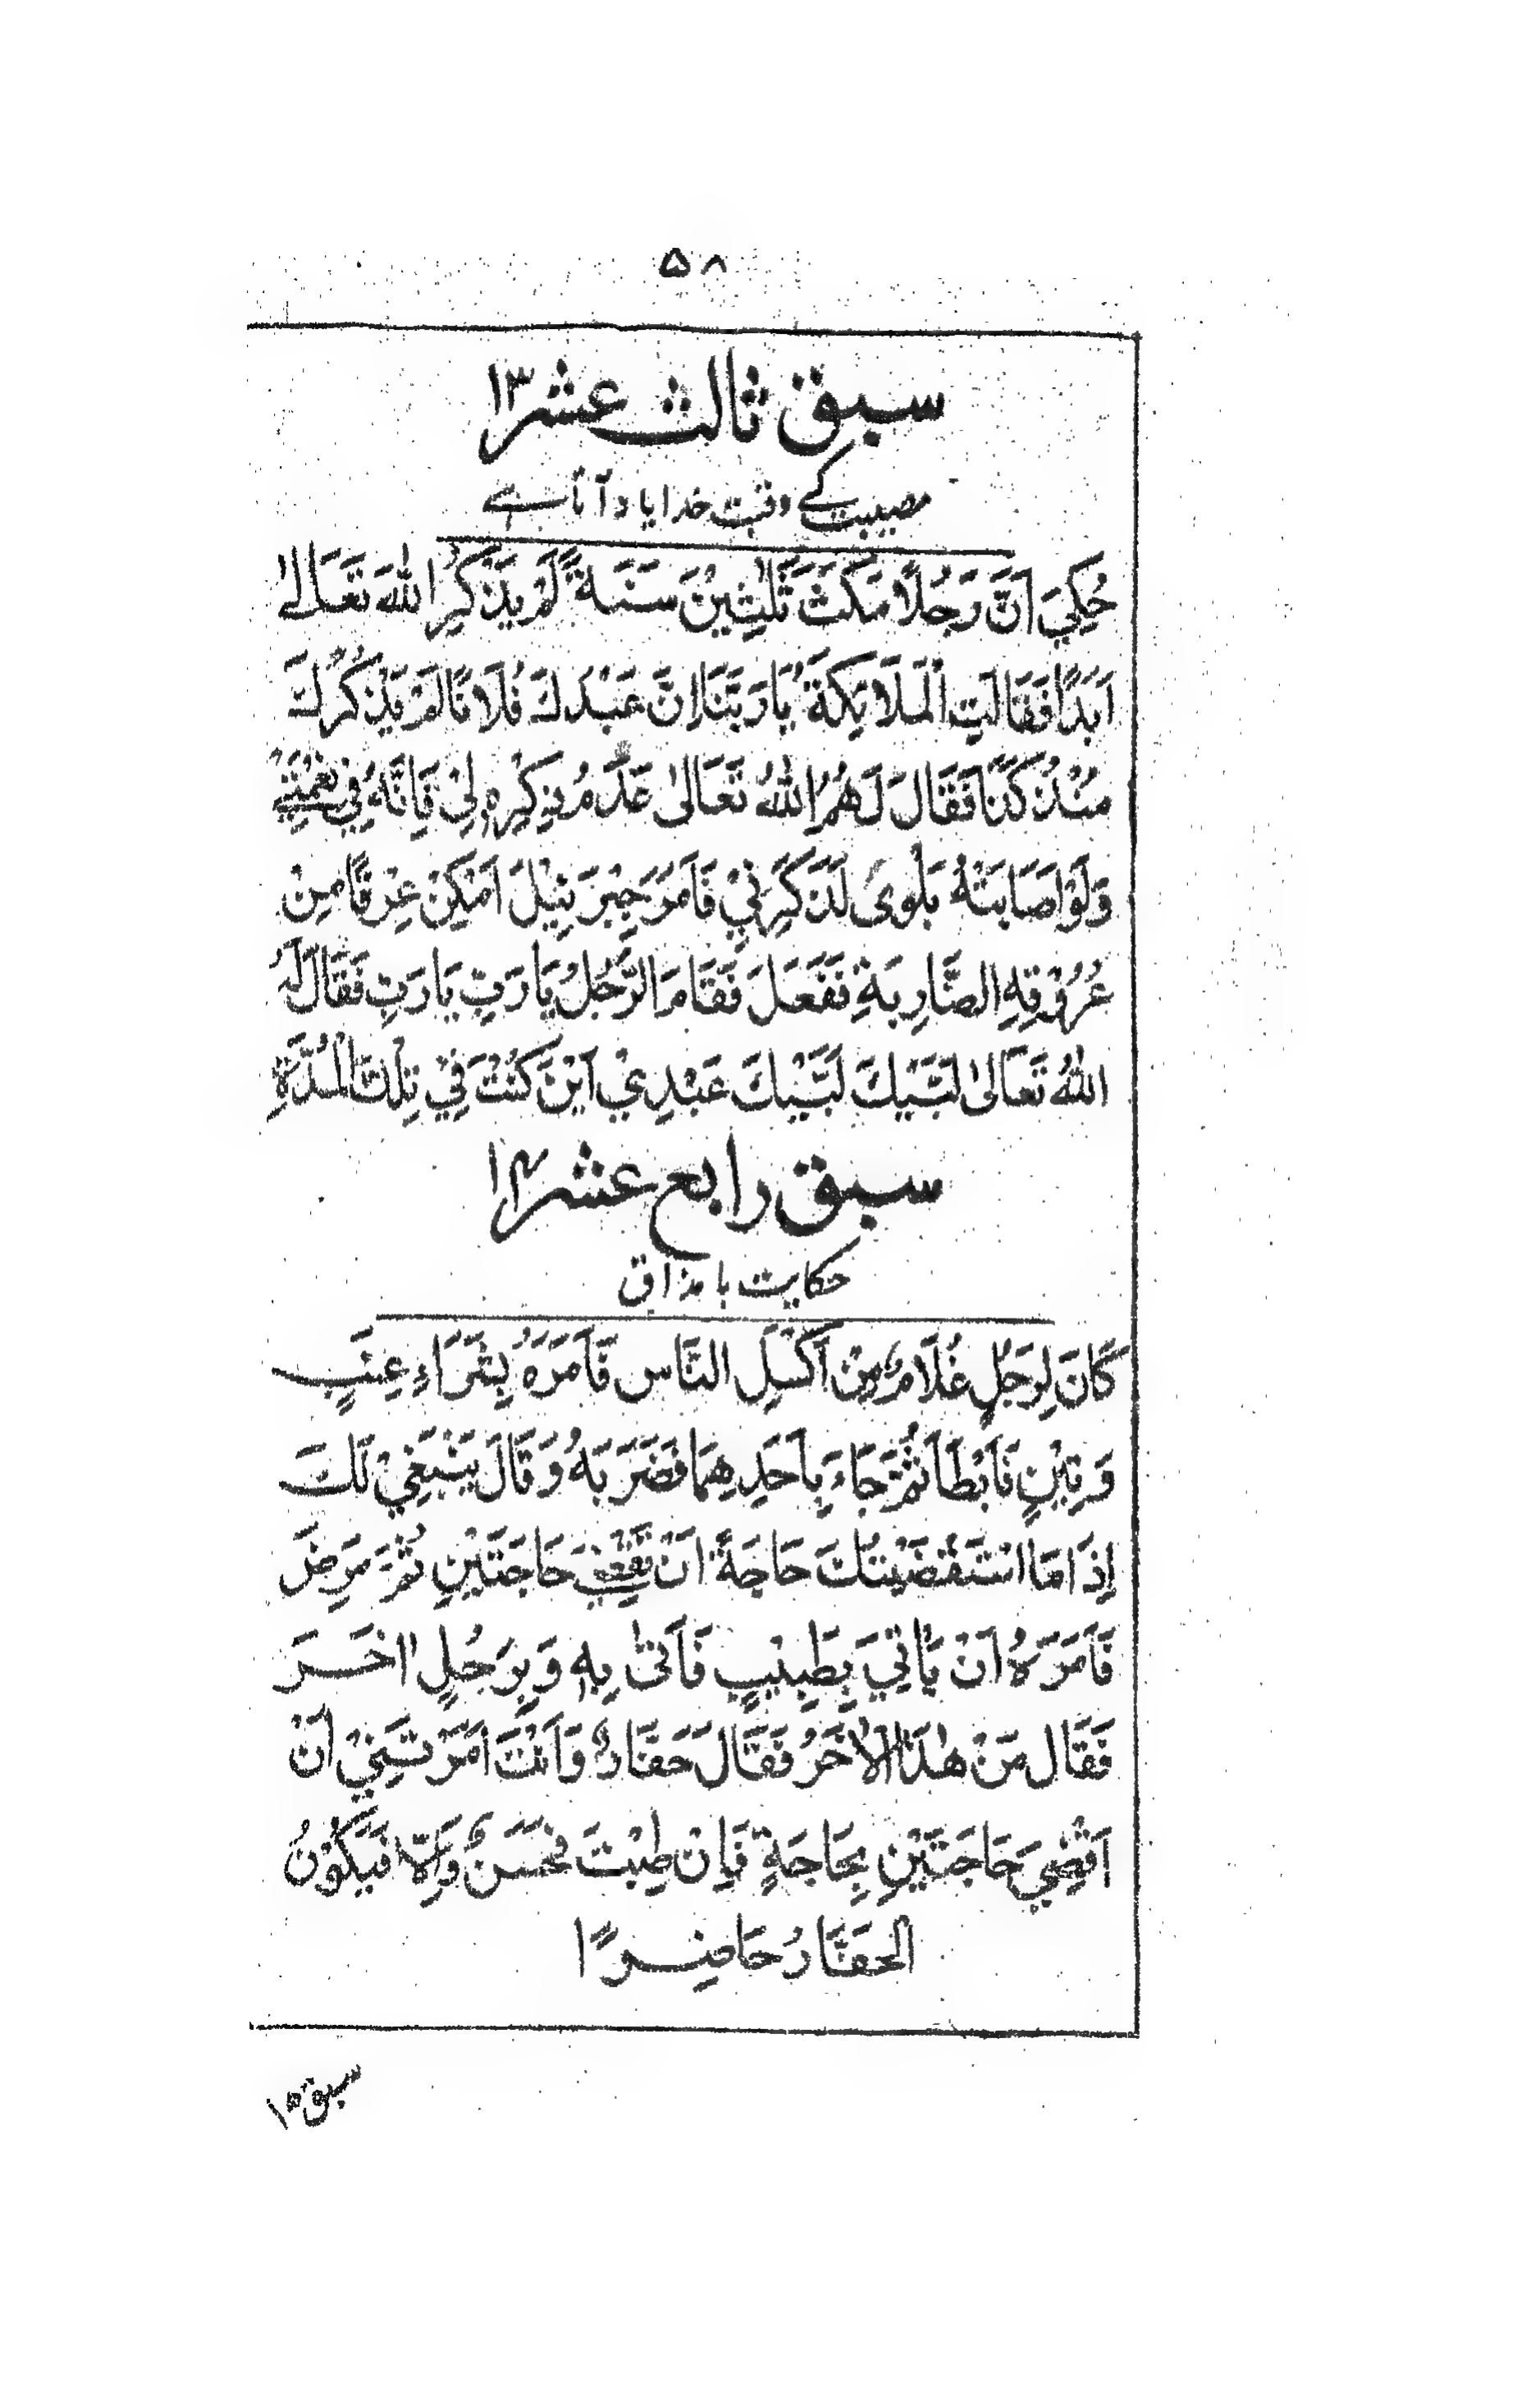 ۵۸
سبق ثالث عشر ۱۳
مصیبت کے وقت خدا یاد آتا ہے
حُكِيَ اَنَّ رَجُلًا مَكَثَ ثَلٰثِيْنَ سَنَةً لَمْ يَذْكُرِ اللّٰهَ تَعَالٰى
اَبَدًا فَقَالَتِ الْمَلَائِكَةُ يَا رَبَّنَا اِنَّ عَبْدَكَ فُلَانًا لَمْ يَذْكُرْكَ
مُنْذُ كَذَا فَقَالَ لَهُمُ اللّٰهُ تَعَالٰى عَدَمُ ذِكْرِهٖ لِيْ فَاِنَّهٗ فِيْ نِعْمَتِيْ
وَلَوْ اَصَابَتْهُ بَلْوٰى لَذَكَرَنِيْ فَاَمَرَ جِبْرَئِيْلَ اَمْكِنْ عِرْقًا مِنْ
عُرُوْقِهِ الضَّارِبَةِ فَفَعَلَ فَقَامَ الرَّجُلُ يَا رَبِّ يَا رَبِّ فَقَالَ لَهُ
اللّٰهُ تَعَالٰى لَبَّيْكَ لَبَّيْكَ عَبْدِيْ اَيْنَ كُنْتَ فِيْ تِلْكَ الْمُدَّةِ
سبق رابع عشر ۱۴
حکایت با مذاق
كَانَ لِرَجُلٍ غُلَامٌ مِنْ اَكْسَلِ النَّاسِ فَاَمَرَهٗ بِشَرَاءِ عِنَبٍ
وَتِيْنٍ فَاَبْطَأَ ثُمَّ جَاءَ بِاَحَدِهِمَا فَضَرَبَهٗ وَقَالَ يَنْبَغِيْ لَكَ
اِذَا مَا اسْتَقْضَيْتُكَ حَاجَةً اَنْ تَقْضِيَ حَاجَتَيْنِ ثُمَّ مَرِضَ
فَاَمَرَهٗ اَنْ يَأْتِيَ بِطَبِيْبٍ فَاَتٰى بِهٖ وَبِرَجُلٍ اٰخَرَ
فَقَالَ مَنْ هٰذَا الْاٰخَرُ فَقَالَ حَفَّارٌ وَاَنْتَ اَمَرْتَنِيْ اَنْ
اَقْضِيَ حَاجَتَيْنِ بِحَاجَةٍ فَاِنْ طِبْتَ فَحَسَنٌ وَاِلَّا فَيَكُوْنُ
الْحَفَّارُ حَاضِرًا
سبق ۱۵